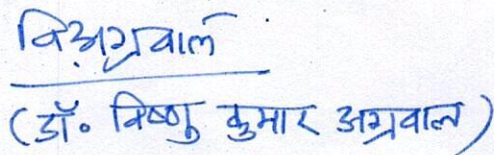 वि अग्रवाल
(डॉ॰ विष्णु कुमार अग्रवाल)